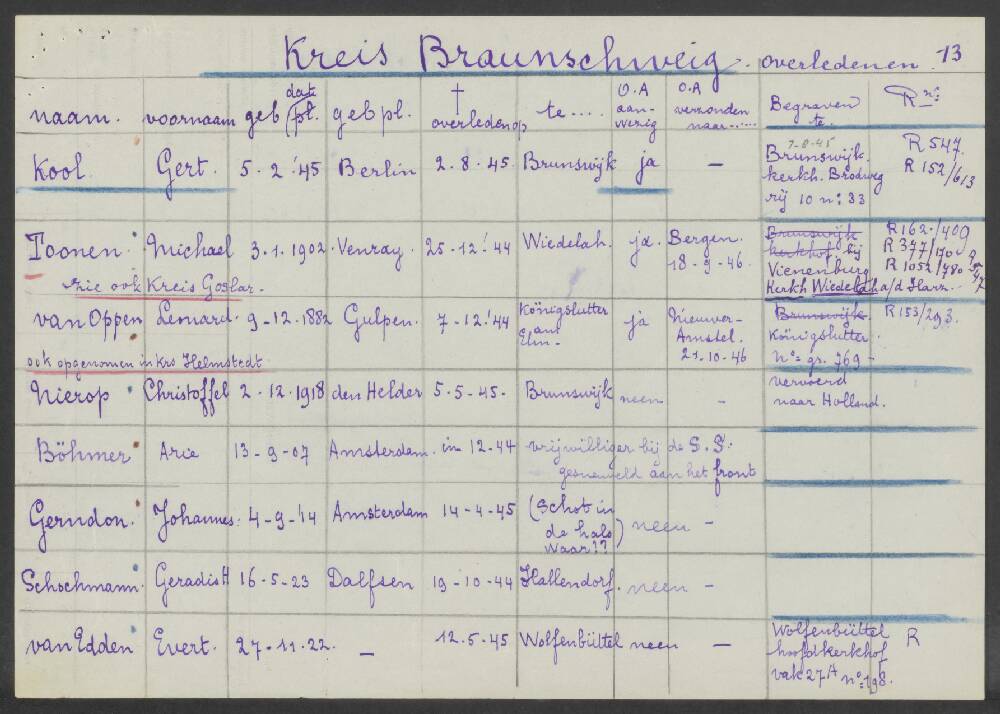 Kreis Braunschweig. overledenen 13
naam. voornaam geb dat/pl. geb pl. † overleden op te.... O.A aanwezig O.A verzonden naar...... Begraven te. R nº:
Kool. Gert. 5-2-'45 Berlin 2-8-45. Brunswijk ja — 7-8-45 Brunswijk. R 547.
kerkh. Brodweg R 152/613
rij 10 nº: 33
Toonen. Michael 3-1-1902. Venray. 25-12-'44 Wiedelah. ja. Bergen. Brunswijk R 162./409
18-9-46. kerkhof bij R 377/170
Vienenburg R 1052/780
zie ook Kreis Goslar. Kerkh Wiedelah a/d Harz.
van Oppen Leonard 9-12-1882 Gulpen. 7-12-'44 Königslutter am Elm- ja Nieuwer-Amstel. 21-10-46 Brunswijk. R 153/293.
Königslutter.
ook opgenomen in Krs Helmstedt nº= gr. 769-
Nierop Christoffel 2-12-1918 den Helder 5-5-45- Brunswijk neen - vervoerd
naar Holland.
Böhmer Arie 13-9-07 Amsterdam. in 12-44 vrijwilliger bij de S.S.
gesneuveld aan het front
Gerndon. Johannes: 4-9-'14 Amsterdam 14-4-45 (Schot in
de hals) neen -
waar??
Schochmann. Geradis H 16-5-23 Dalfsen 19-10-44 Hallendorf. neen -
van Edden Evert. 27-11-22. — 12-5-45 Wolfenbüttel neen — Wolfenbüttel R
hoofdkerkhof
vak 27A nº=198.